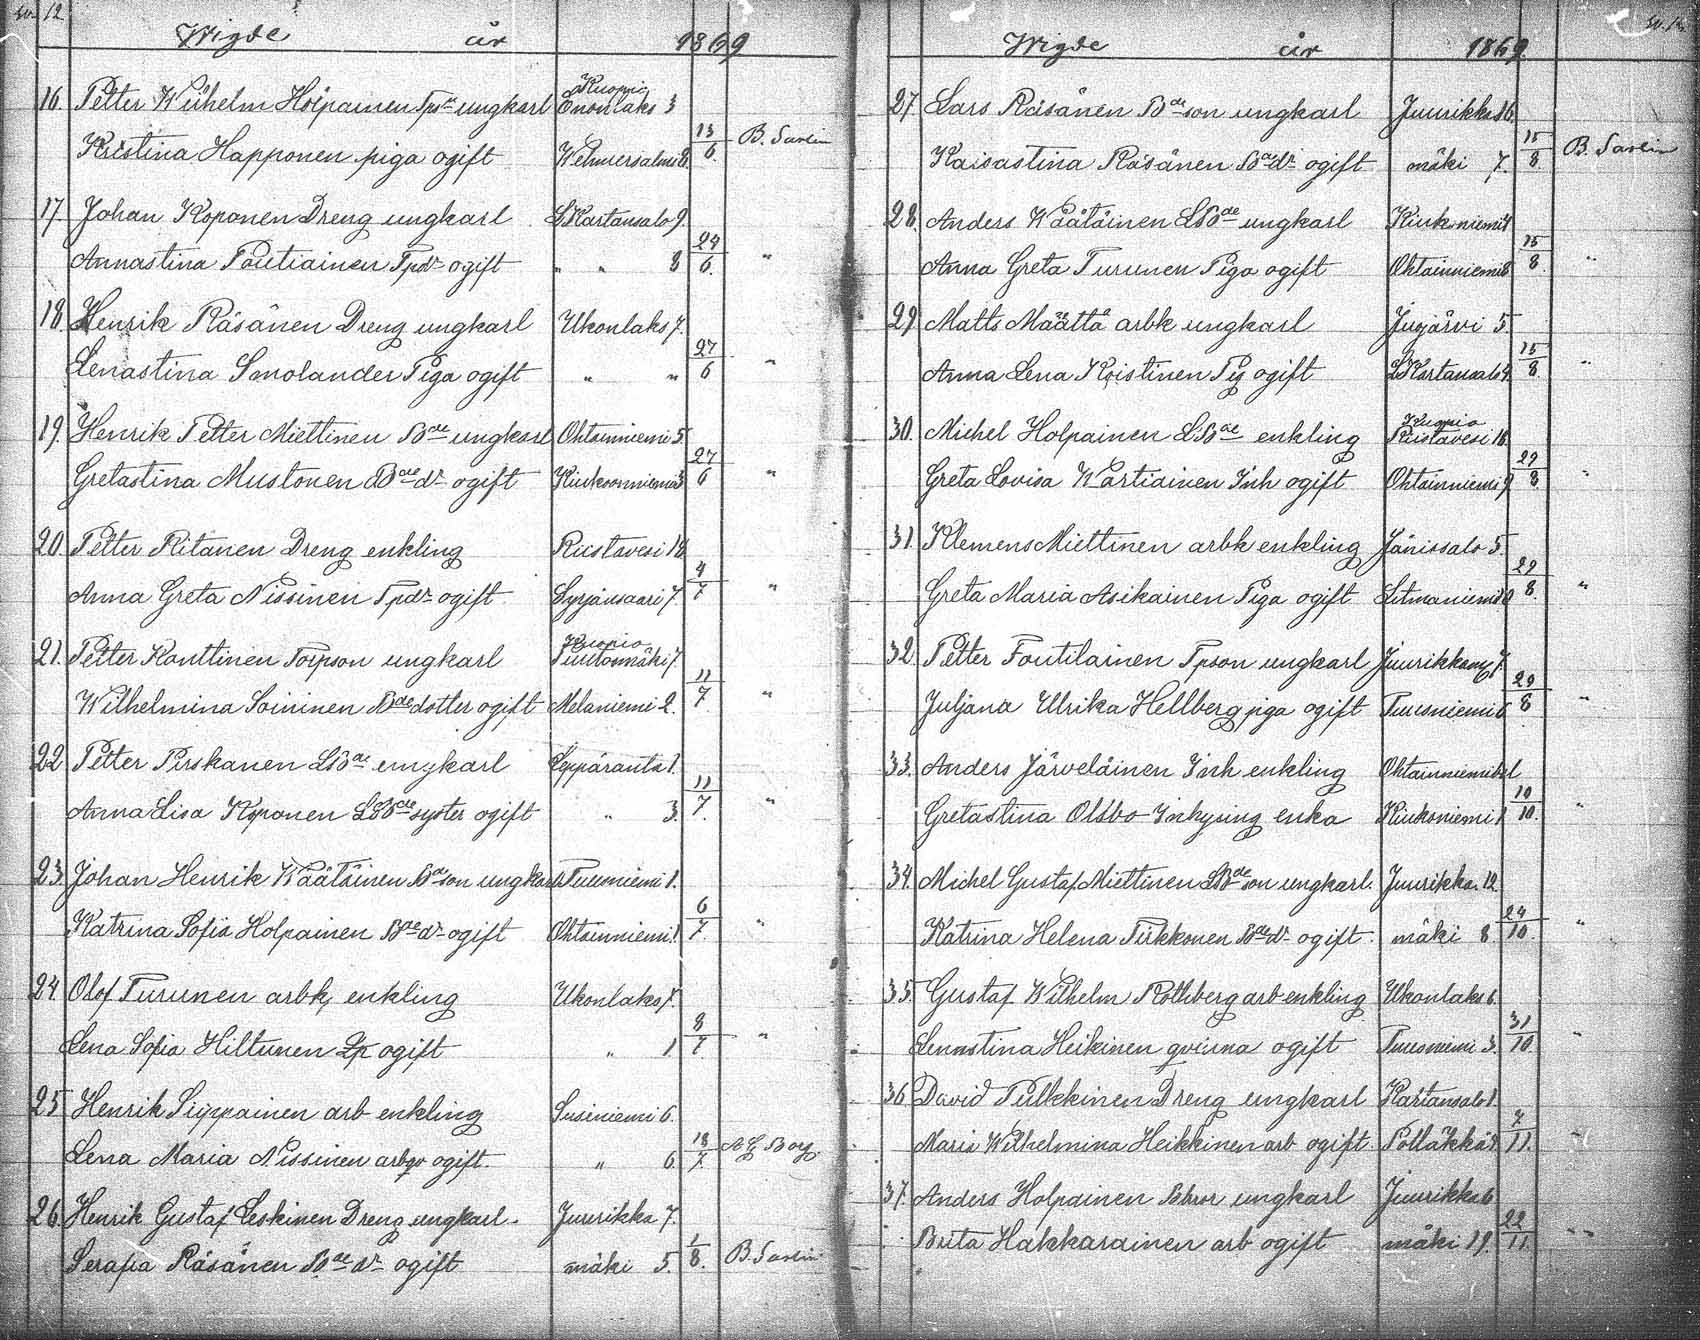 Wigde år 1869
16. Petter Wilhelm Holpainen Tpson ungkarl Kuopio Enonlaks 3
Kristina Happonen piga ogift Wehmersalmi 6. 13/6. B. Sarlin
17. Johan Koponen Dreng ungkarl L. Kartansalo 9.
Annastina Poutiainen Tpdr ogift " " 8 24/6. "
18. Henrik Räsänen Dreng ungkarl Ukonlaks 7.
Lenastina Smolander Piga ogift " " 27/6 "
19. Henrik Petter Miettinen Bde ungkarl Ohtainniemi 5.
Gretastina Mustonen Bdedr ogift Kiukoonniemi 3 27/6 "
20. Petter Ritanen Dreng enkling Riistavesi 18
Anna Greta Nissinen Tpdr ogift Syrjänsaari 7. 4/7 "
21. Petter Konttinen Torpson ungkarl Kuopio 7.
Wilhelmina Soininen Bdedotter ogift Melaniemi 2. 11/7 "
22 Petter Pirskanen LBde ungkarl Leppäranta 1.
Anna Lisa Koponen LBdesyster ogift " 3. 11/7. "
23. Johan Henrik Wäätäinen Bdeson ungkarl Tuusniemi 1.
Katrina Sofia Holpainen Bdedr ogift Ohtainniemi 1 6/7. "
24. Olof Turunen arbk enkling Ukonlaks 7.
Lena Sofia Hiltunen ogift " 1. 8/7 "
25 Henrik Sippainen arb enkling Susiniemi 6.
Lena Maria Nissinen arbqv ogift. " 6. 18/7. A G Borg.
26. Henrik Gustaf Leskinen Dreng ungkarl. Juurikka 7.
Serafia Räsänen Bdedr ogift mäki 5. 1/8. B. Sarlin
Wigde år 1869.
27. Lars Räsänen Bdeson ungkarl Juurikka 16.
Kaisastina Räsänen Bdedr ogift mäki 7. 15/8. B. Sarlin
28. Anders Wäätäinen LBde ungkarl Kiukoniemi 4
Anna Greta Turunen Piga ogift Ohtainniemi 8 15/8. "
29. Matts Määttä arbk ungkarl Juojärvi 5.
Anna Lena Kristinen Pig ogift L Kartansalo 4. 15/8. "
30. Michel Holpainen LBde enkling Kuopio Riistavesi 16.
Greta Lovisa Wartiainen Inh ogift Ohtainniemi 9 29/8. "
31. Klemens Miettinen arbk enkling Jänissalo 5.
Greta Maria Asikainen Piga ogift Litmaniemi 8 29/8. "
32 Petter Foutilainen Tpson ungkarl Juurikkam 7.
Juljana Ulrika Hellberg piga ogift Tuusniemi 6. 29/8 "
33. Anders Järveläinen Inh enkling Ohtainniemi
Gretastina Olsbo Inhysing enka Kiukoniemi 1 10/10. "
34. Michel Gustaf Miettinen LBdeson ungkarl. Juurikka. 12.
Katrina Helena Tirkkonen Bdedr ogift. mäki 8. 24/10. "
35. Gustaf Wilhelm Rothberg arb enkling Ukonlaks 6.
Lenastina Heikinen qvinna ogift Tuusniemi 3. 31/10. "
36 David Pulkkinen Dreng ungkarl Kartansalo 1.
Maria Wilhelmina Heikkinen arb ogift Potläkkä 4. 7/11. "
37. Anders Holpainen Bdebror ungkarl Juurikka 6
Brita Hakkarainen arb ogift mäki 19. 22/11. "